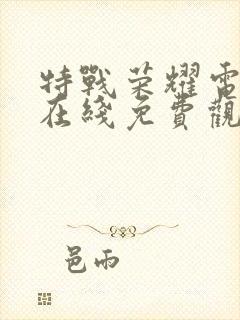 特戰荣耀電
在綫免費觀
邑雨